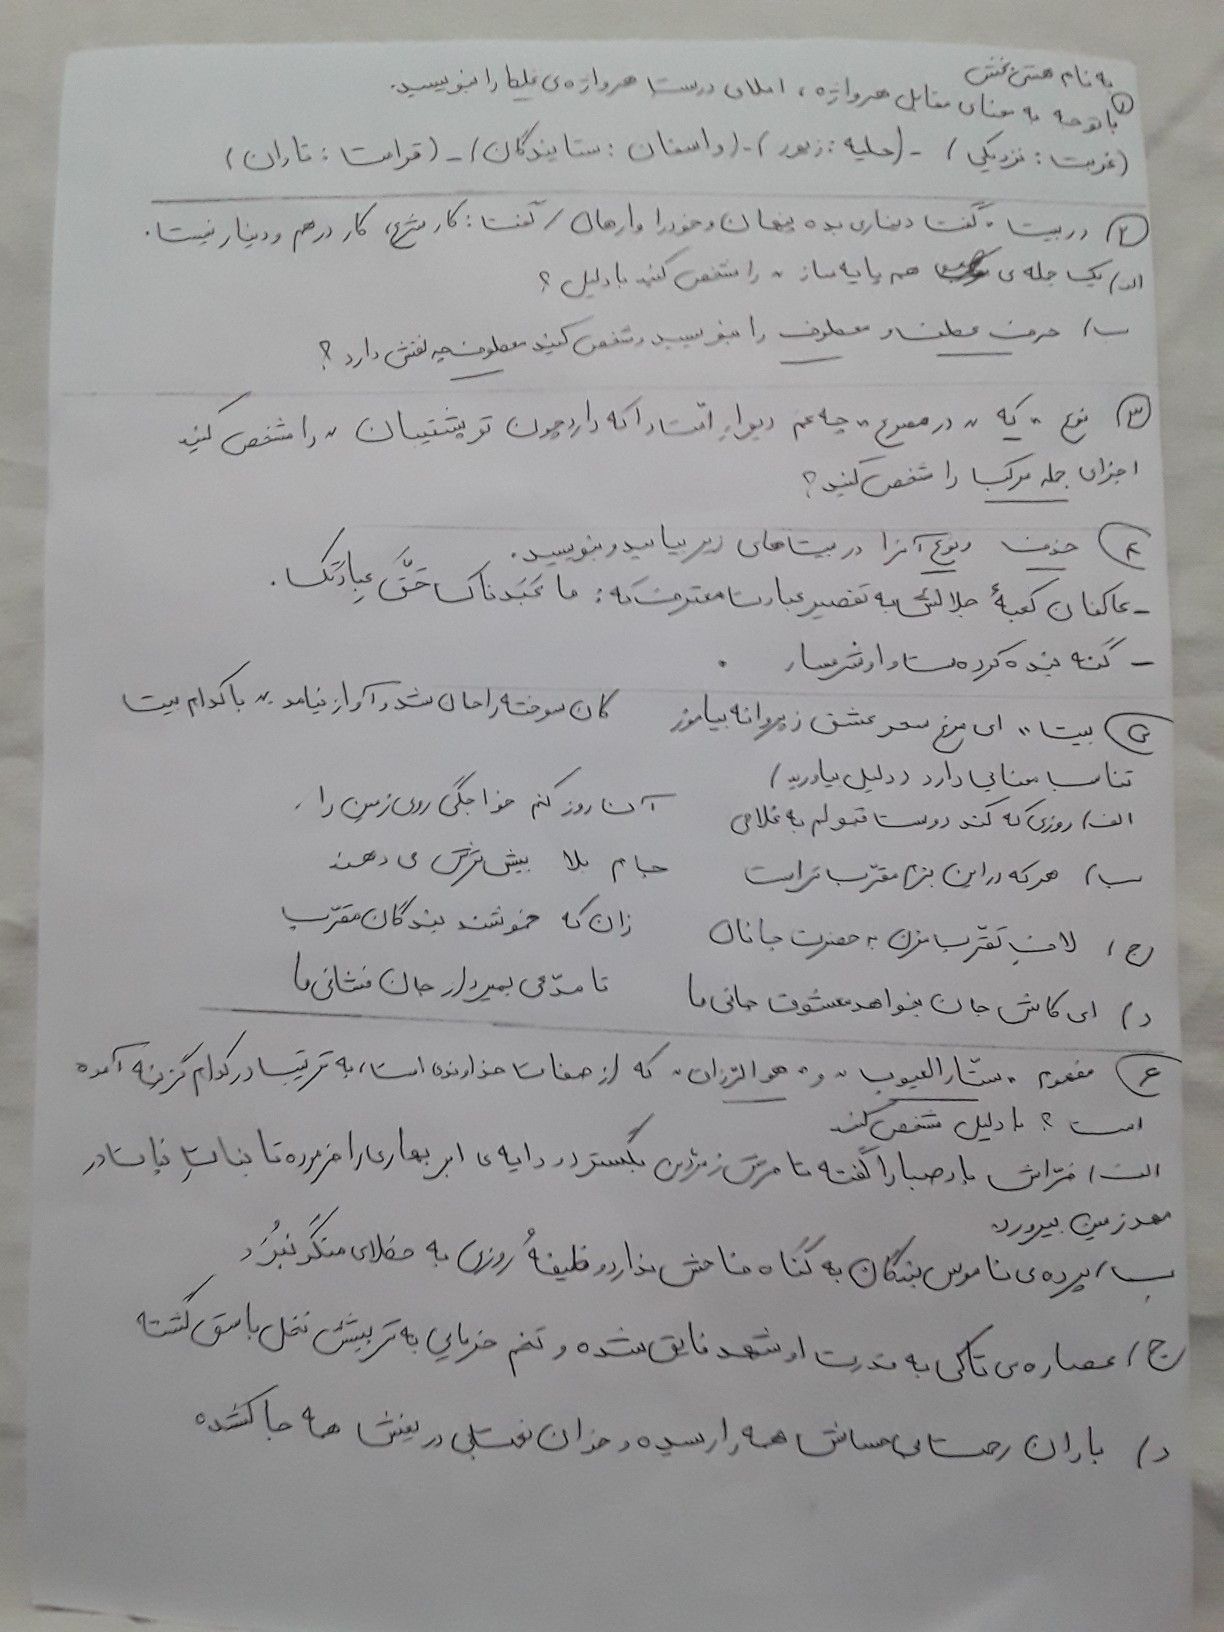 به نام هستی بخش
۱) با توجه به معنای مقابل هر واژه، املای درست هر واژه‌ی غلط را بنویسید.
(غربت : نزدیکی) - (حلیه : زیور) - (واسفان : ستایندگان) - (قرامت : تاوان)
۲) در بیت " گفت دیناری بده پنهان و خود را وارهان / گفت : کار شرع، کار درهم و دینار نیست.
الف) یک جمله ی هم پایه ساز " را مشخص کنید با دلیل ؟
ب) حرف عطف و معطوف را بنویسید و مشخص کنید معطوف چه نقش دارد ؟
۳) نوع " که " در مصرع " چه غم دیوار امّت را که دارد چون تو پشتیبان " را مشخص کنید
اجزای جمله مرکب را مشخص کنید ؟
۴) حذف و نوع آنرا در بیت های زیر بیابید و بنویسید.
- عاکفان کعبهٔ جلالش به تقصیر عبادت معترفت که : ما عَبَدناک حَقَّ عِبادَتِک .
- گنه بنده کرده ست و او شرمسار .
۵) بیت " ای مرغ سحر عشق ز پروانه بیاموز کان سوخته را جان شد و آواز نیامد " با کدام بیت
تناسب معنایی دارد (دلیل بیاورید)
الف) روزی که کند دوست قبولم به غلامی آن روز کنم خواجگی روی زمین را .
ب) هر که در این بزم مقرّب تر است جام بلا بیش ترش می دهند
ج) لاف تقرّب مزن به حضرت جانان زان که خموشند بندگان مقرّب
د) ای کاش جان بخواهد معشوق جانی ما تا مدّعی بمیرد از جان فشانی ما
۶) مفهوم " ستّار العیوب " و " هو الرّزاق " که از صفات خداوندی است، به ترتیب در کدام گزینه آمده
است ؟ با دلیل مشخص کنید
الف) فرّاش باد صبا را گفته تا فرش زمرّدین بگسترد و دایه ی ابر بهاری را فرموده تا بنات نبات در
مهد زمین بپرورد
ب) پرده ی ناموس بندگان به گناه فاحش ندارد و ظیفهٔ روزی به خطای منکَر نبُرد
ج) عصاره ی تاکی به قدرت او شهد فایق شده و تخم خرمایی به تربیتش نخل باسق گشته
د) باران رحمت بی حسابش همه را رسیده و خوان نعمت بی دریغش همه جا کشیده